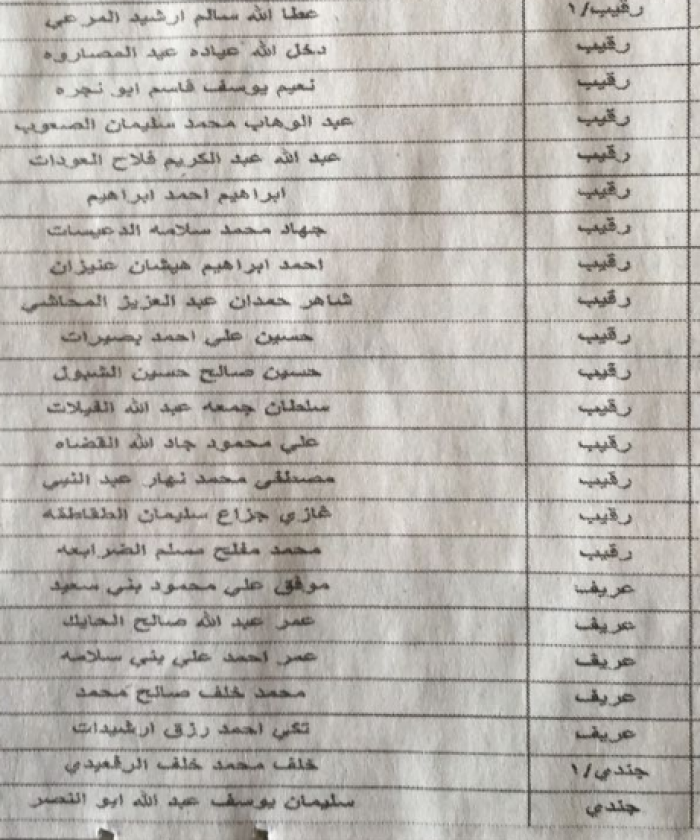 رقيب/١ عطا الله سالم ارشيد المرعي
رقيب دخل الله عياده عيد المصاروه
رقيب نعيم يوسف قاسم ابو نجره
رقيب عبد الوهاب محمد سليمان الصعوب
رقيب عبد الله عبد الكريم فلاح العودات
رقيب ابراهيم احمد ابراهيم
رقيب جهاد محمد سلامه الدعيسات
رقيب احمد ابراهيم هيشان عنيزان
رقيب شاهر حمدان عبد العزيز المحاشي
رقيب حسين علي احمد بصيرات
رقيب حسين صالح حسين الشبول
رقيب سلطان جمعه عبد الله القيلات
رقيب علي محمود جاد الله القضاه
رقيب مصطفى محمد نهار عبد النبي
رقيب غازي جزاع سليمان الطقاطقه
رقيب محمد مفلح مسلم الضرابعه
عريف موفق علي محمود بني سعيد
عريف عمر عبد الله صالح الحايك
عريف عمر احمد علي بني سلامه
عريف محمد خلف صالح محمد
عريف تكي احمد رزق ارشيدات
جندي/١ خلف محمد خلف الرقعيدي
جندي سليمان يوسف عبد الله ابو النصر